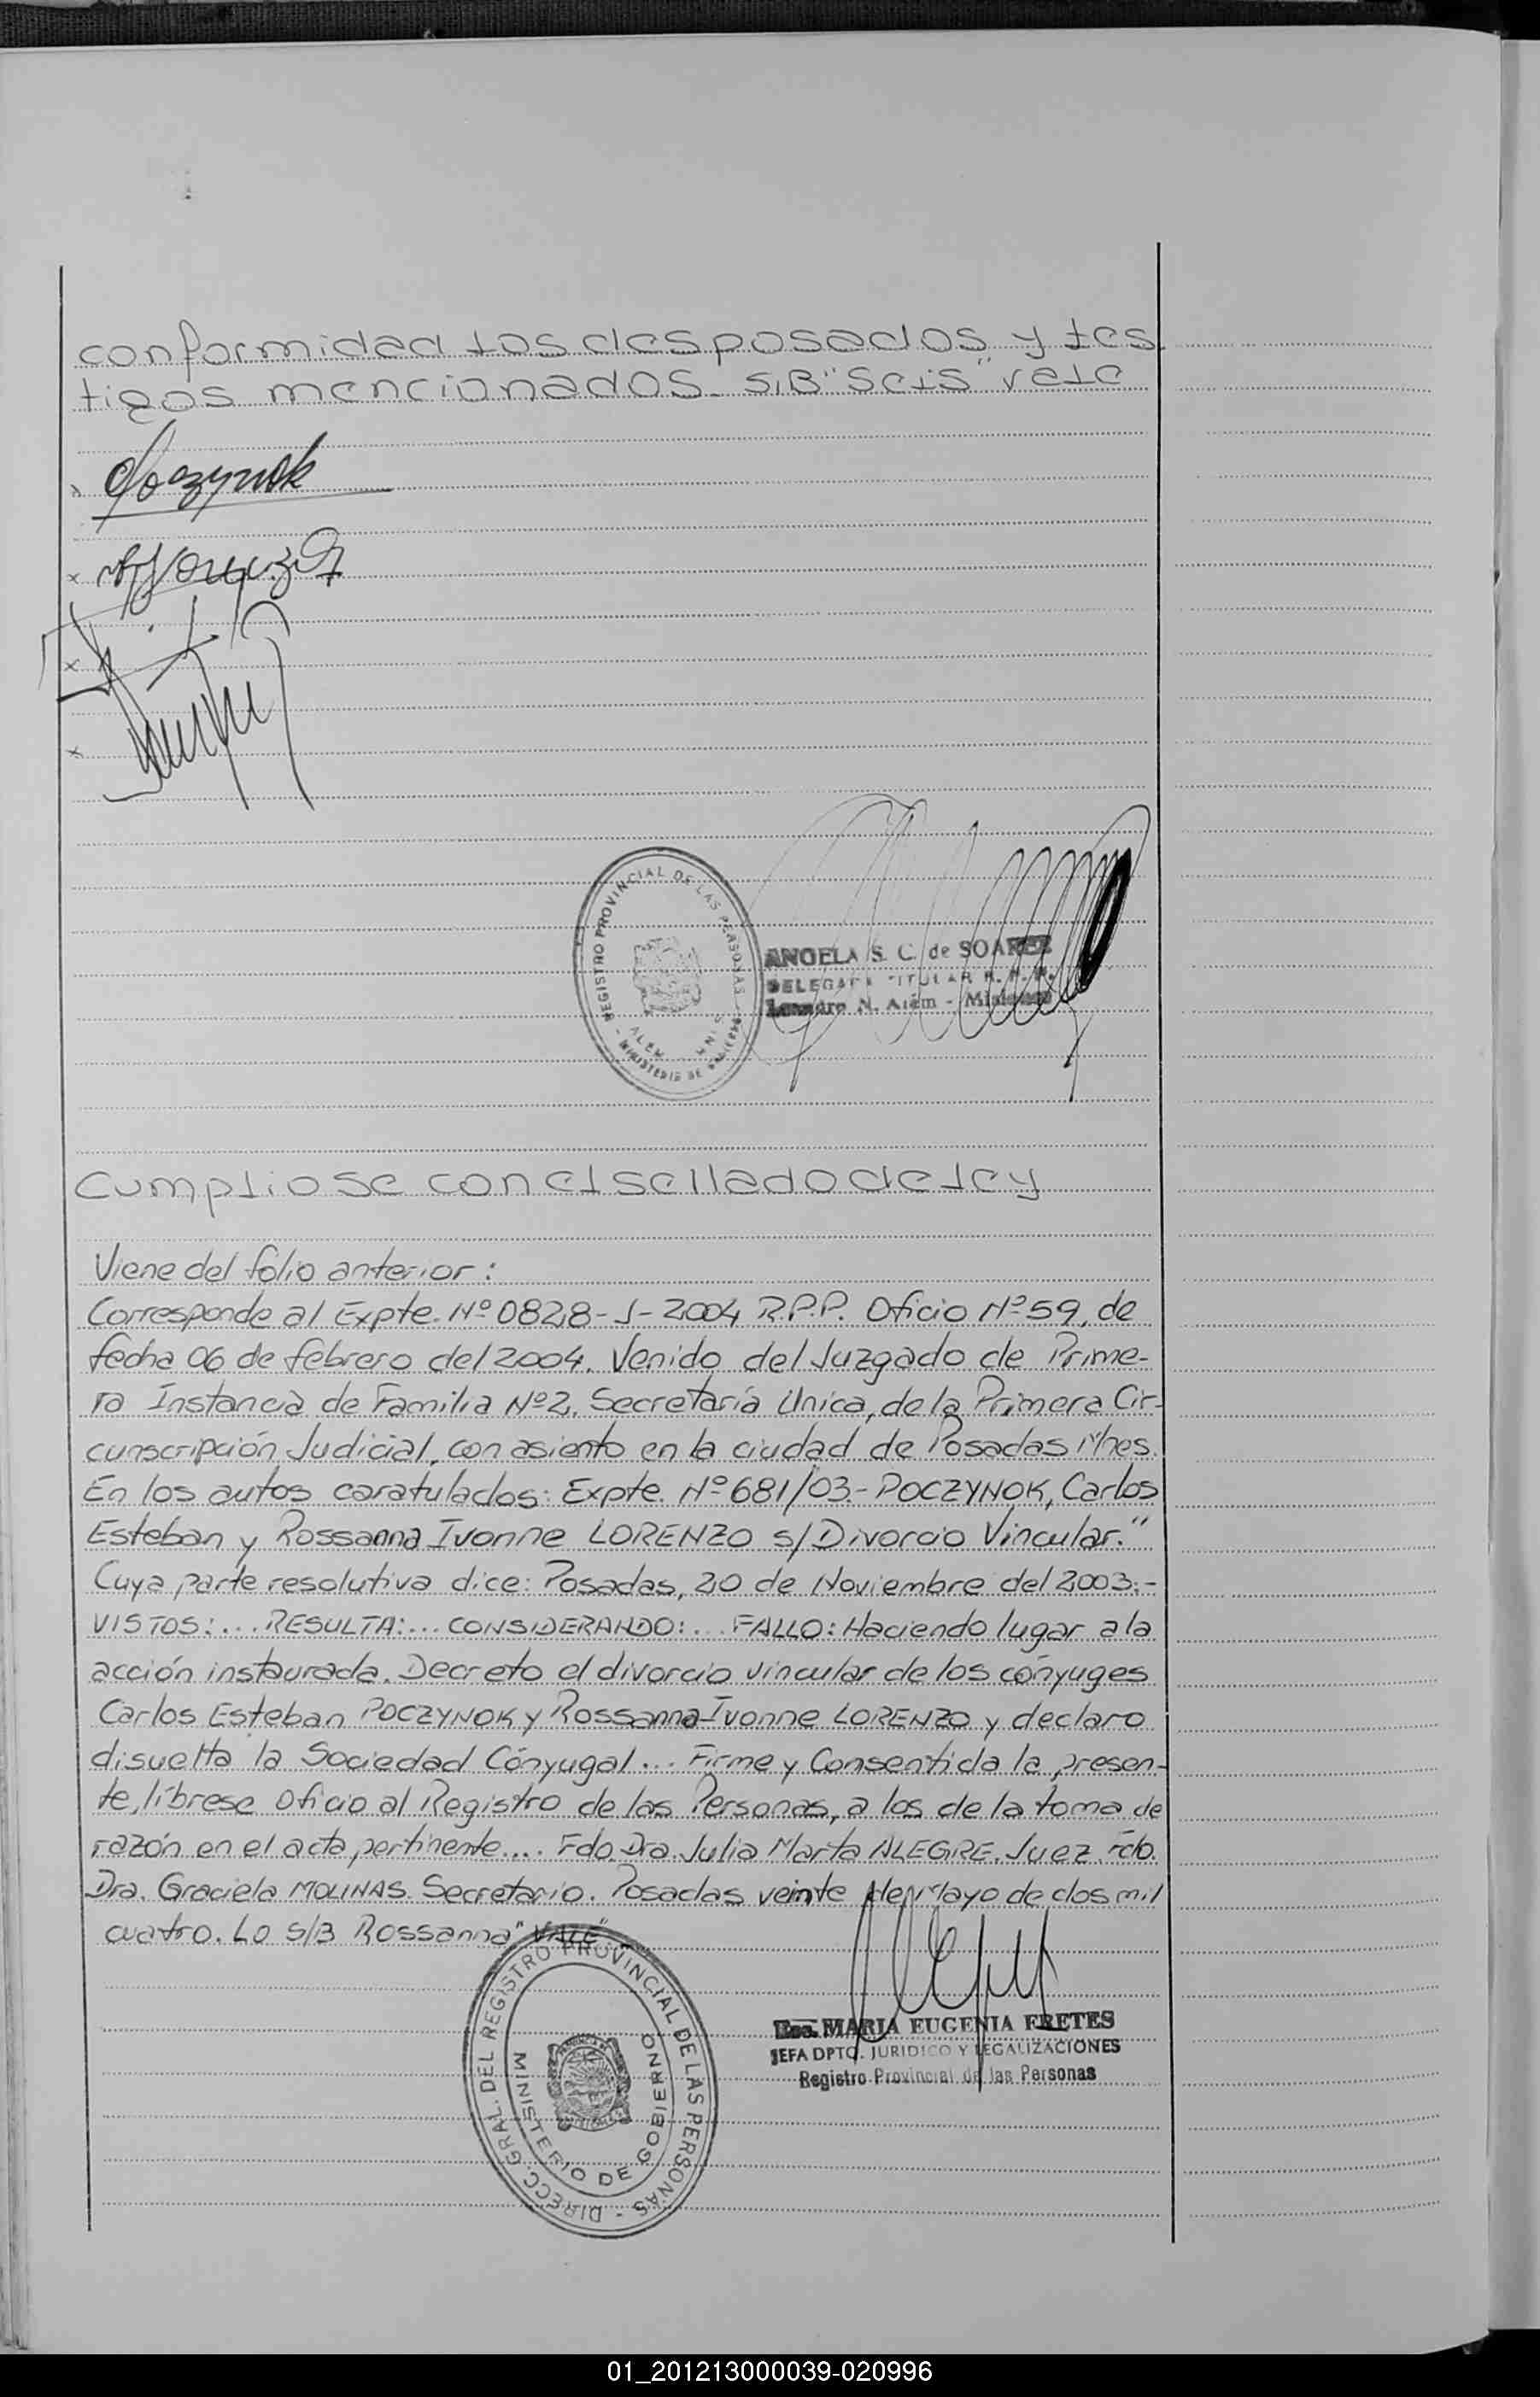 conformidad los desposados y tes
tigos mencionados. S/B "seis" vale
Poczynok
REGISTRO PROVINCIAL DE LAS PERSONAS
ALEM MNES
MINISTERIO DE GOBIERNO
ANGELA S. C. de SOAREZ
DELEGADA TITULAR R. P. P.
Leandro N. Alem - Misiones
Cumpliose con el sellado de ley
Viene del folio anterior:
Corresponde al Expte. Nº 0828-J-2004 R.P.P. Oficio Nº 59, de
fecha 06 de febrero del 2004. Venido del Juzgado de Prime-
ra Instancia de Familia Nº 2, Secretaría Unica, de la Primera Cir-
cunscripción Judicial, con asiento en la ciudad de Posadas Mnes.
En los autos caratulados: Expte. Nº 681/03.- POCZYNOK, Carlos
Esteban y Rossanna Ivonne LORENZO s/Divorcio Vincular."
Cuya parte resolutiva dice: Posadas, 20 de Noviembre del 2003.-
VISTOS:... RESULTA:... CONSIDERANDO:... FALLO: Haciendo lugar a la
acción instaurada. Decreto el divorcio vincular de los cónyuges
Carlos Esteban POCZYNOK y Rossanna Ivonne LORENZO y declaro
disuelta la Sociedad Cónyugal... Firme y Consentida la presen-
te, líbrese Oficio al Registro de las Personas, a los de la toma de
razón en el acta pertinente.... Fdo. Dra. Julia Marta ALEGRE. Juez. Fdo.
Dra. Graciela MOLINAS. Secretario. Posadas veinte de Mayo de dos mil
cuatro. Lo S/B Rossanna "VALE"
DIRECC. GRAL. DEL REGISTRO PROVINCIAL DE LAS PERSONAS -
MINISTERIO DE GOBIERNO
MARIA EUGENIA FRETES
JEFA DPTO. JURIDICO Y LEGALIZACIONES
Registro Provincial de las Personas
01_201213000039-020996